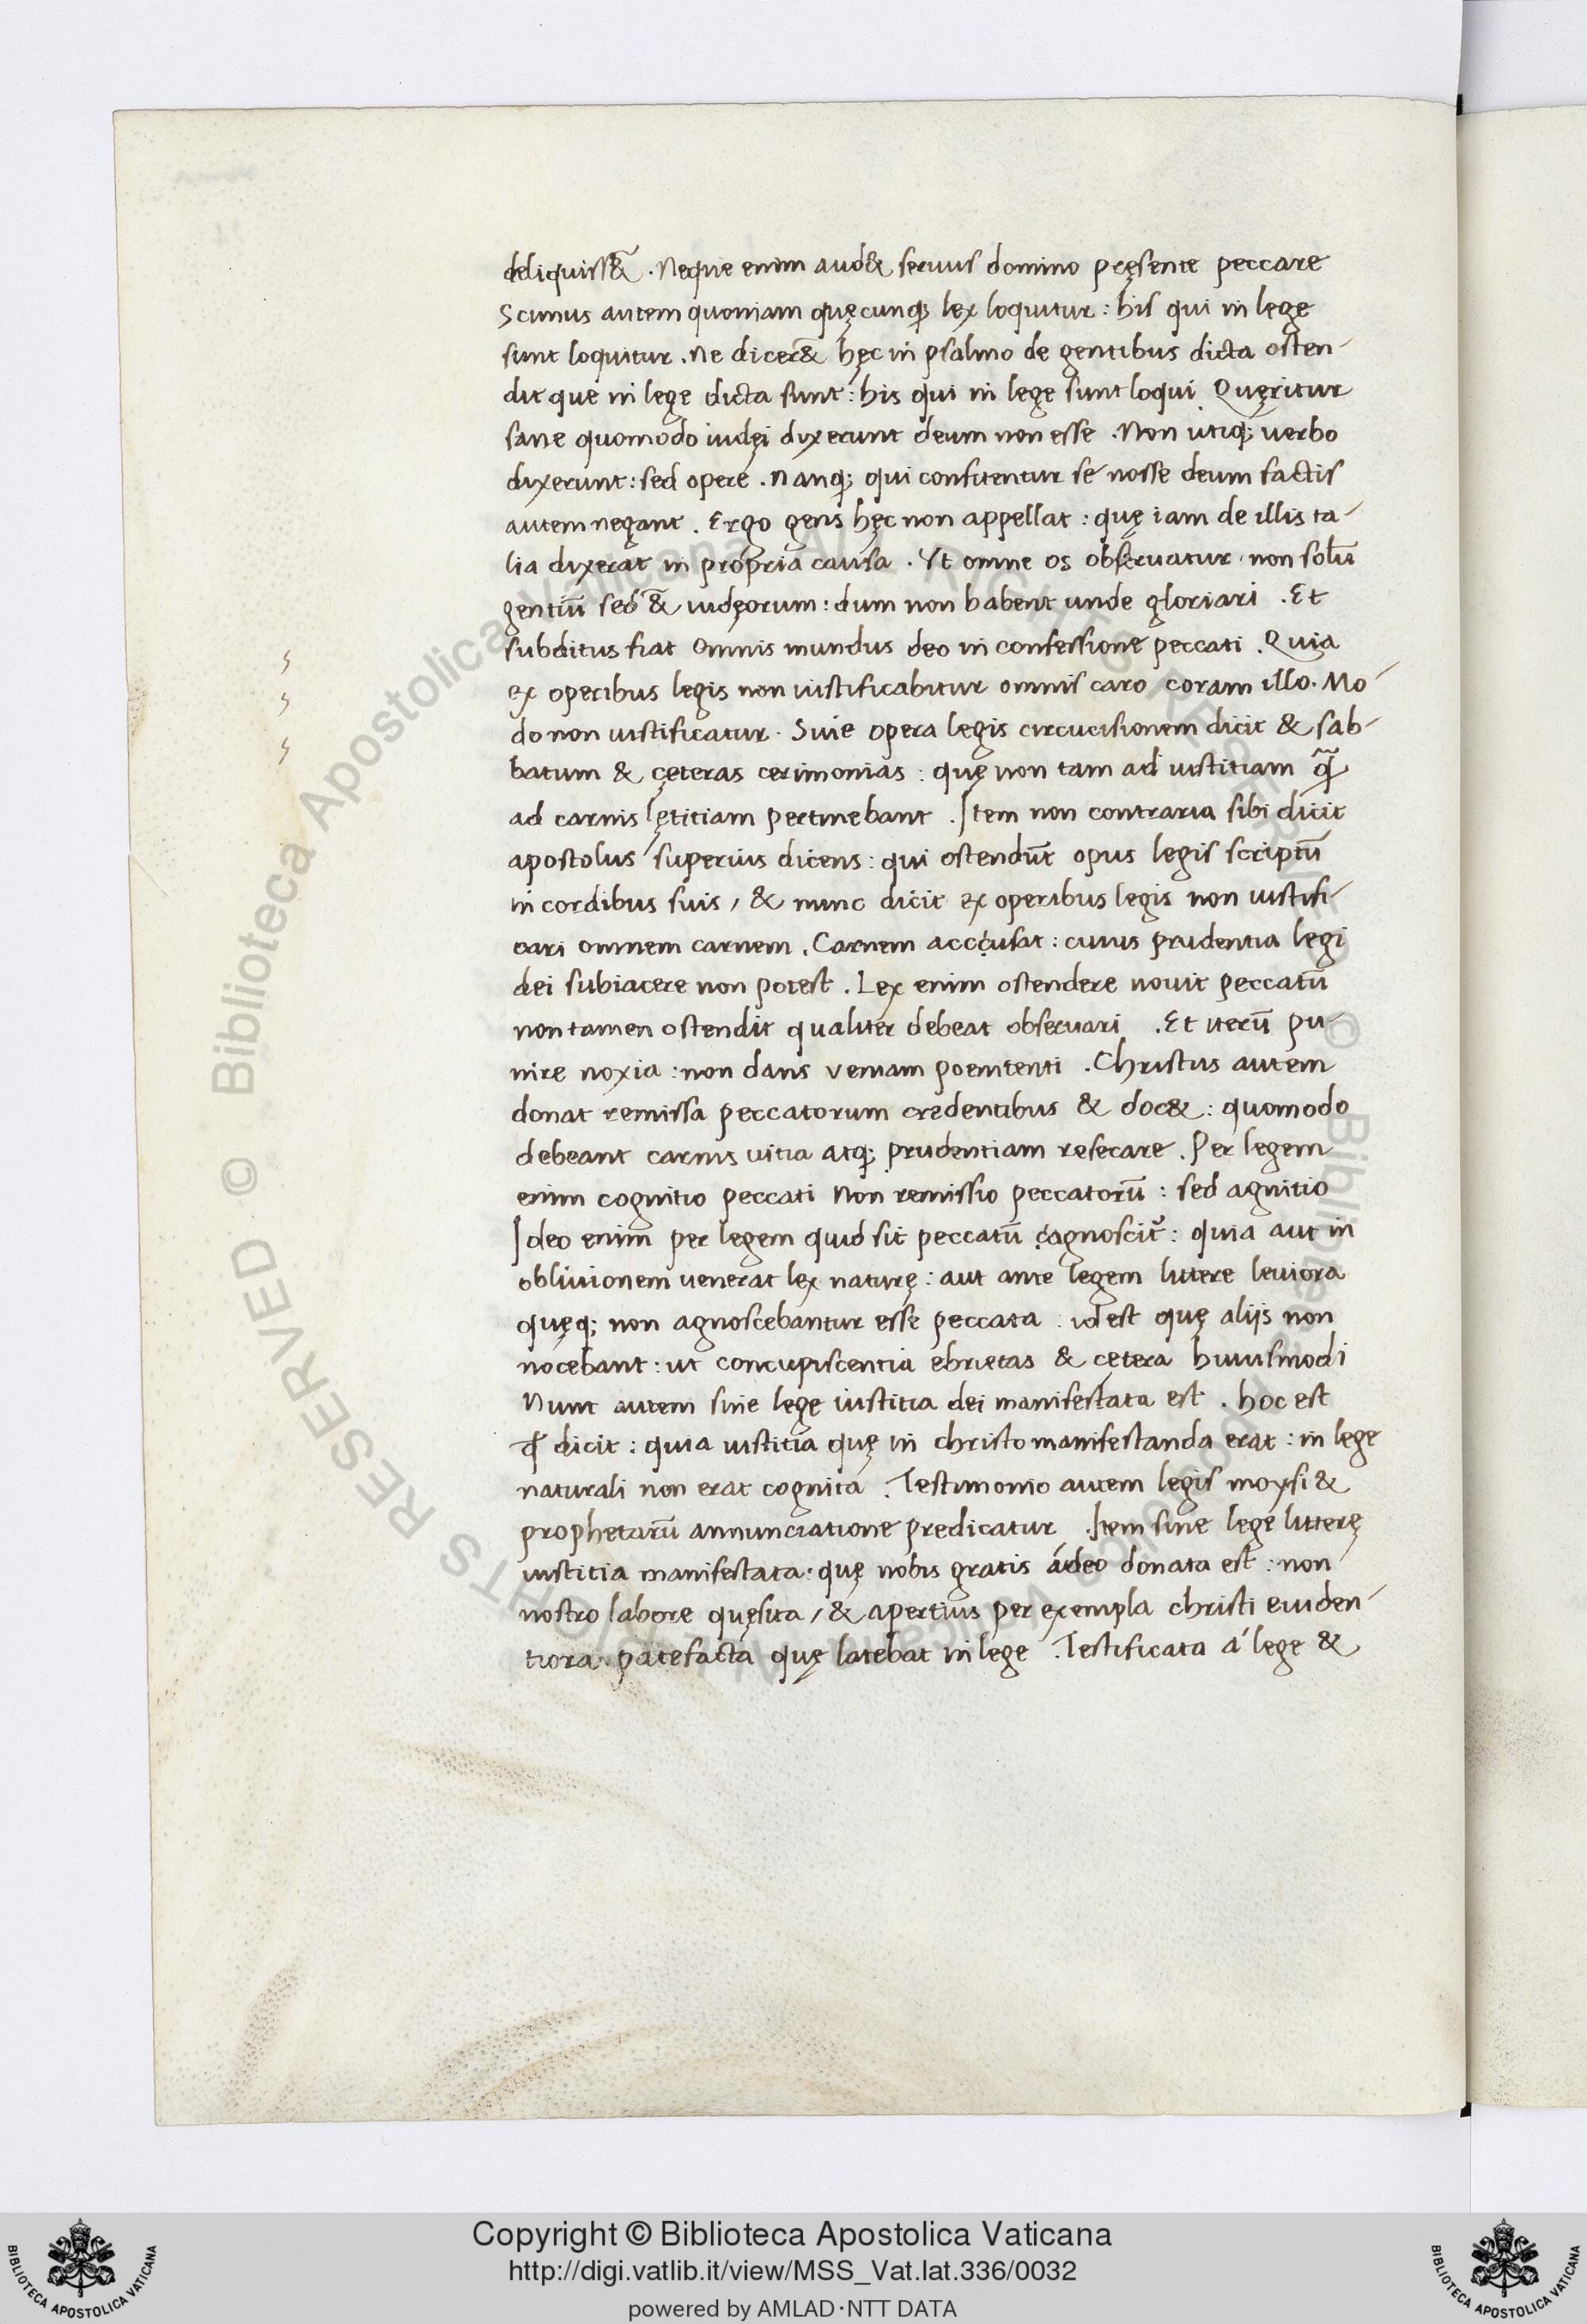 deliquiss&̃ . Neque enim aud& seruus domino pręsente peccare
Scimus autem quoniam quęcunq; lex loquitur : his qui in lege
sunt loquitur . Ne dicer&̃ hęc in psalmo de gentibus dicta osten-
dit que in lege dicta sunt : his qui in lege sunt loqui . Quęritur
sane quomodo iudęi dixerunt deum non esse . Non utiq; uerbo
dixerunt : sed opere . Nanq; qui confitentur se nosse deum factis
autem negant . Ergo gens hęc non appellat : quę iam de illis ta-
lia dixerat in propria causa . Vt omne os obseruatur . non solũ
gentiũ sed &̃ iudęorum : dum non habent unde gloriari . Et
subditus fiat omnis mundus deo in confessione peccati . Quia
ex operibus legis non iustificabitur omnis caro coram illo . Mo-
do non iustificatur . Siue opera legis circucisionem dicit & sab-
batum & cęteras cerimonias : quę non tam ad iustitiam q̃
ad carnis lętitiam pertinebant . Item non contraria sibi dicit
apostolus superius dicens : qui ostendũt opus legis scriptũ
in cordibus suis , & nunc dicit ex operibus legis non iustifi-
cari omnem carnem . Carnem acccusat : cuius prudentia legi
dei subiacere non potest . Lex enim ostendere nouit peccatũ
non tamen ostendit qualiter debeat obseruari . Et iterũ pu-
nire noxia : non dans veniam poenitenti . Christus autem
donat remissa peccatorum credentibus & doc& : quomodo
debeant carnis uitia atq; prudentiam resecare . Per legem
enim cognitio peccati Non remissio peccatorũ : sed agnitio
Ideo enim per legem quid sit peccatũ cagnoscit᷑ : quia aut in
obliuionem uenerat lex naturę : aut ante legem littere leuiora
quęq; non agnoscebantur esse peccata : id est quę aliis non
nocebant : ut concupiscentia ebrietas & cętera huiusmodi
Nunt autem sine lege iustitia dei manifestata est . hoc est
qđ dicit : quia iustitia quę in christo manifestanda erat : in lege
naturali non erat cognita . Testimonio autem legis moysi &
prophetarũ annunciatione predicatur . Item sine lege litterę
iustitia manifestata : quę nobis gratis ádeo donata est : non
nostro labore quęsita , & apertius per exempla christi euiden-
tiora . patefacta quę latebat in lege . Testificata á lege &
Copyright © Biblioteca Apostolica Vaticana
http://digi.vatlib.it/view/MSS_Vat.lat.336/0032
powered by AMLAD·NTT DATA
BIBLIOTECA APOSTOLICA VATICANA
BIBLIOTECA APOSTOLICA VATICANA